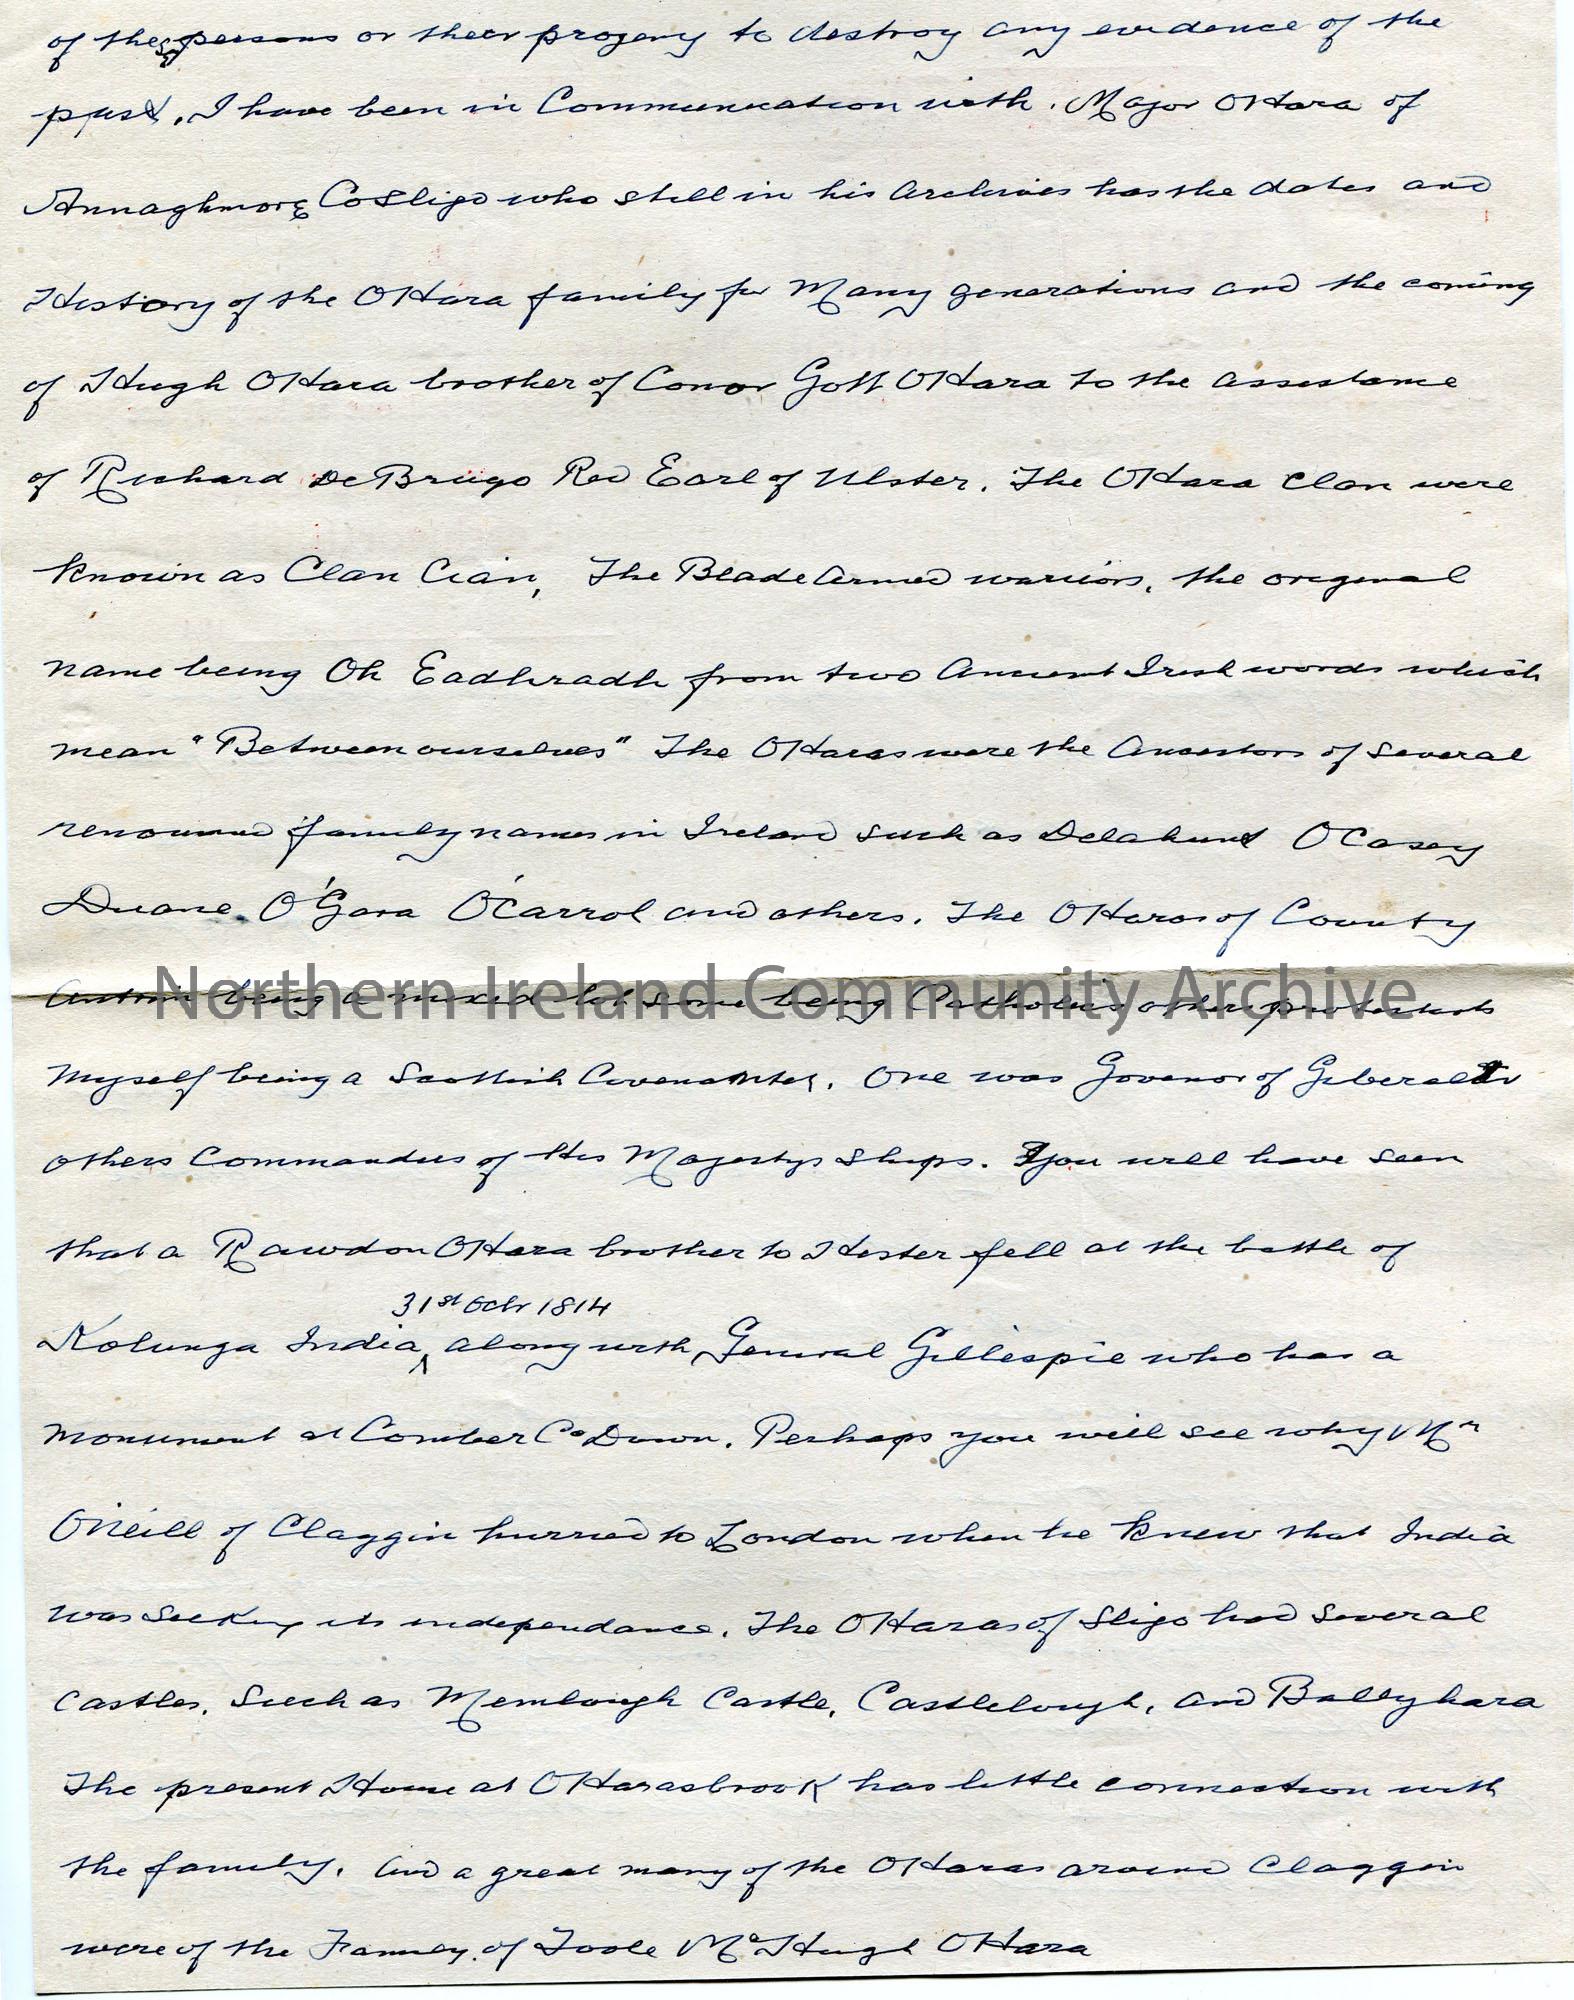 of these persons or their progeny to destroy any evidence of the
past, I have been in Communication with. Major OHara of
Annaghmore Co Sligo who still in his Archives has the dates and
History of the OHara family for Many generations and the coming
of Hugh OHara brother of Conor Gott OHara to the assistance
of Richard De Brugo Red Earl of Ulster. The OHara Clan were
known as Clan Cian, The Blade Armed warriors, the original
name being Oh Eadhradh from two Ancient Irish words which
mean "Between ourselves" The OHaras were the Ancestors of several
renowned family names in Ireland such as Delahunt OCasey
Duane. O'Gara O'Carrol and others. The OHaras of County
Antrim being a mixed lot some being Catholics others protestants
Northern Ireland Community Archive
Myself being a Scottish Covenanter. One was Govenor of Giberaltr
others Commanders of His Majestys Ships. You will have seen
that a Rawdon OHara brother to Hester fell at the battle of
31st Octr 1814
Kolunga India, along with General Gillespie who has a
monument at Comber Co Down. Perhaps you will see why Mr
O'Neill of Claggin hurried to London when he knew that India
was seeking its independance. The OHaras of Sligo had several
castles. Such as Memlough Castle, Castlelough, and Ballyhara
The present House at OHarasbrook has little connection with
the family. And a great many of the OHaras around Claggin
were of the Family. of Toole McHugh OHara